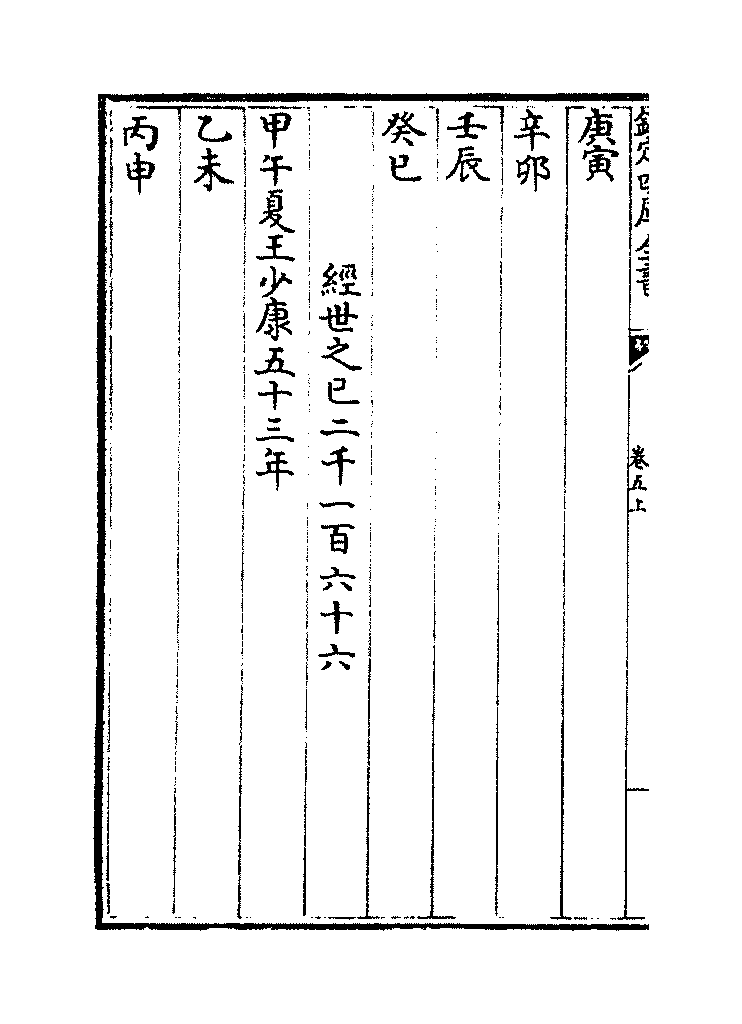 欽定四庫全書
卷五上
庚寅
辛卯
壬辰
癸巳
經世之巳二千一百六十六
甲午夏王少康五十三年
乙未
丙申